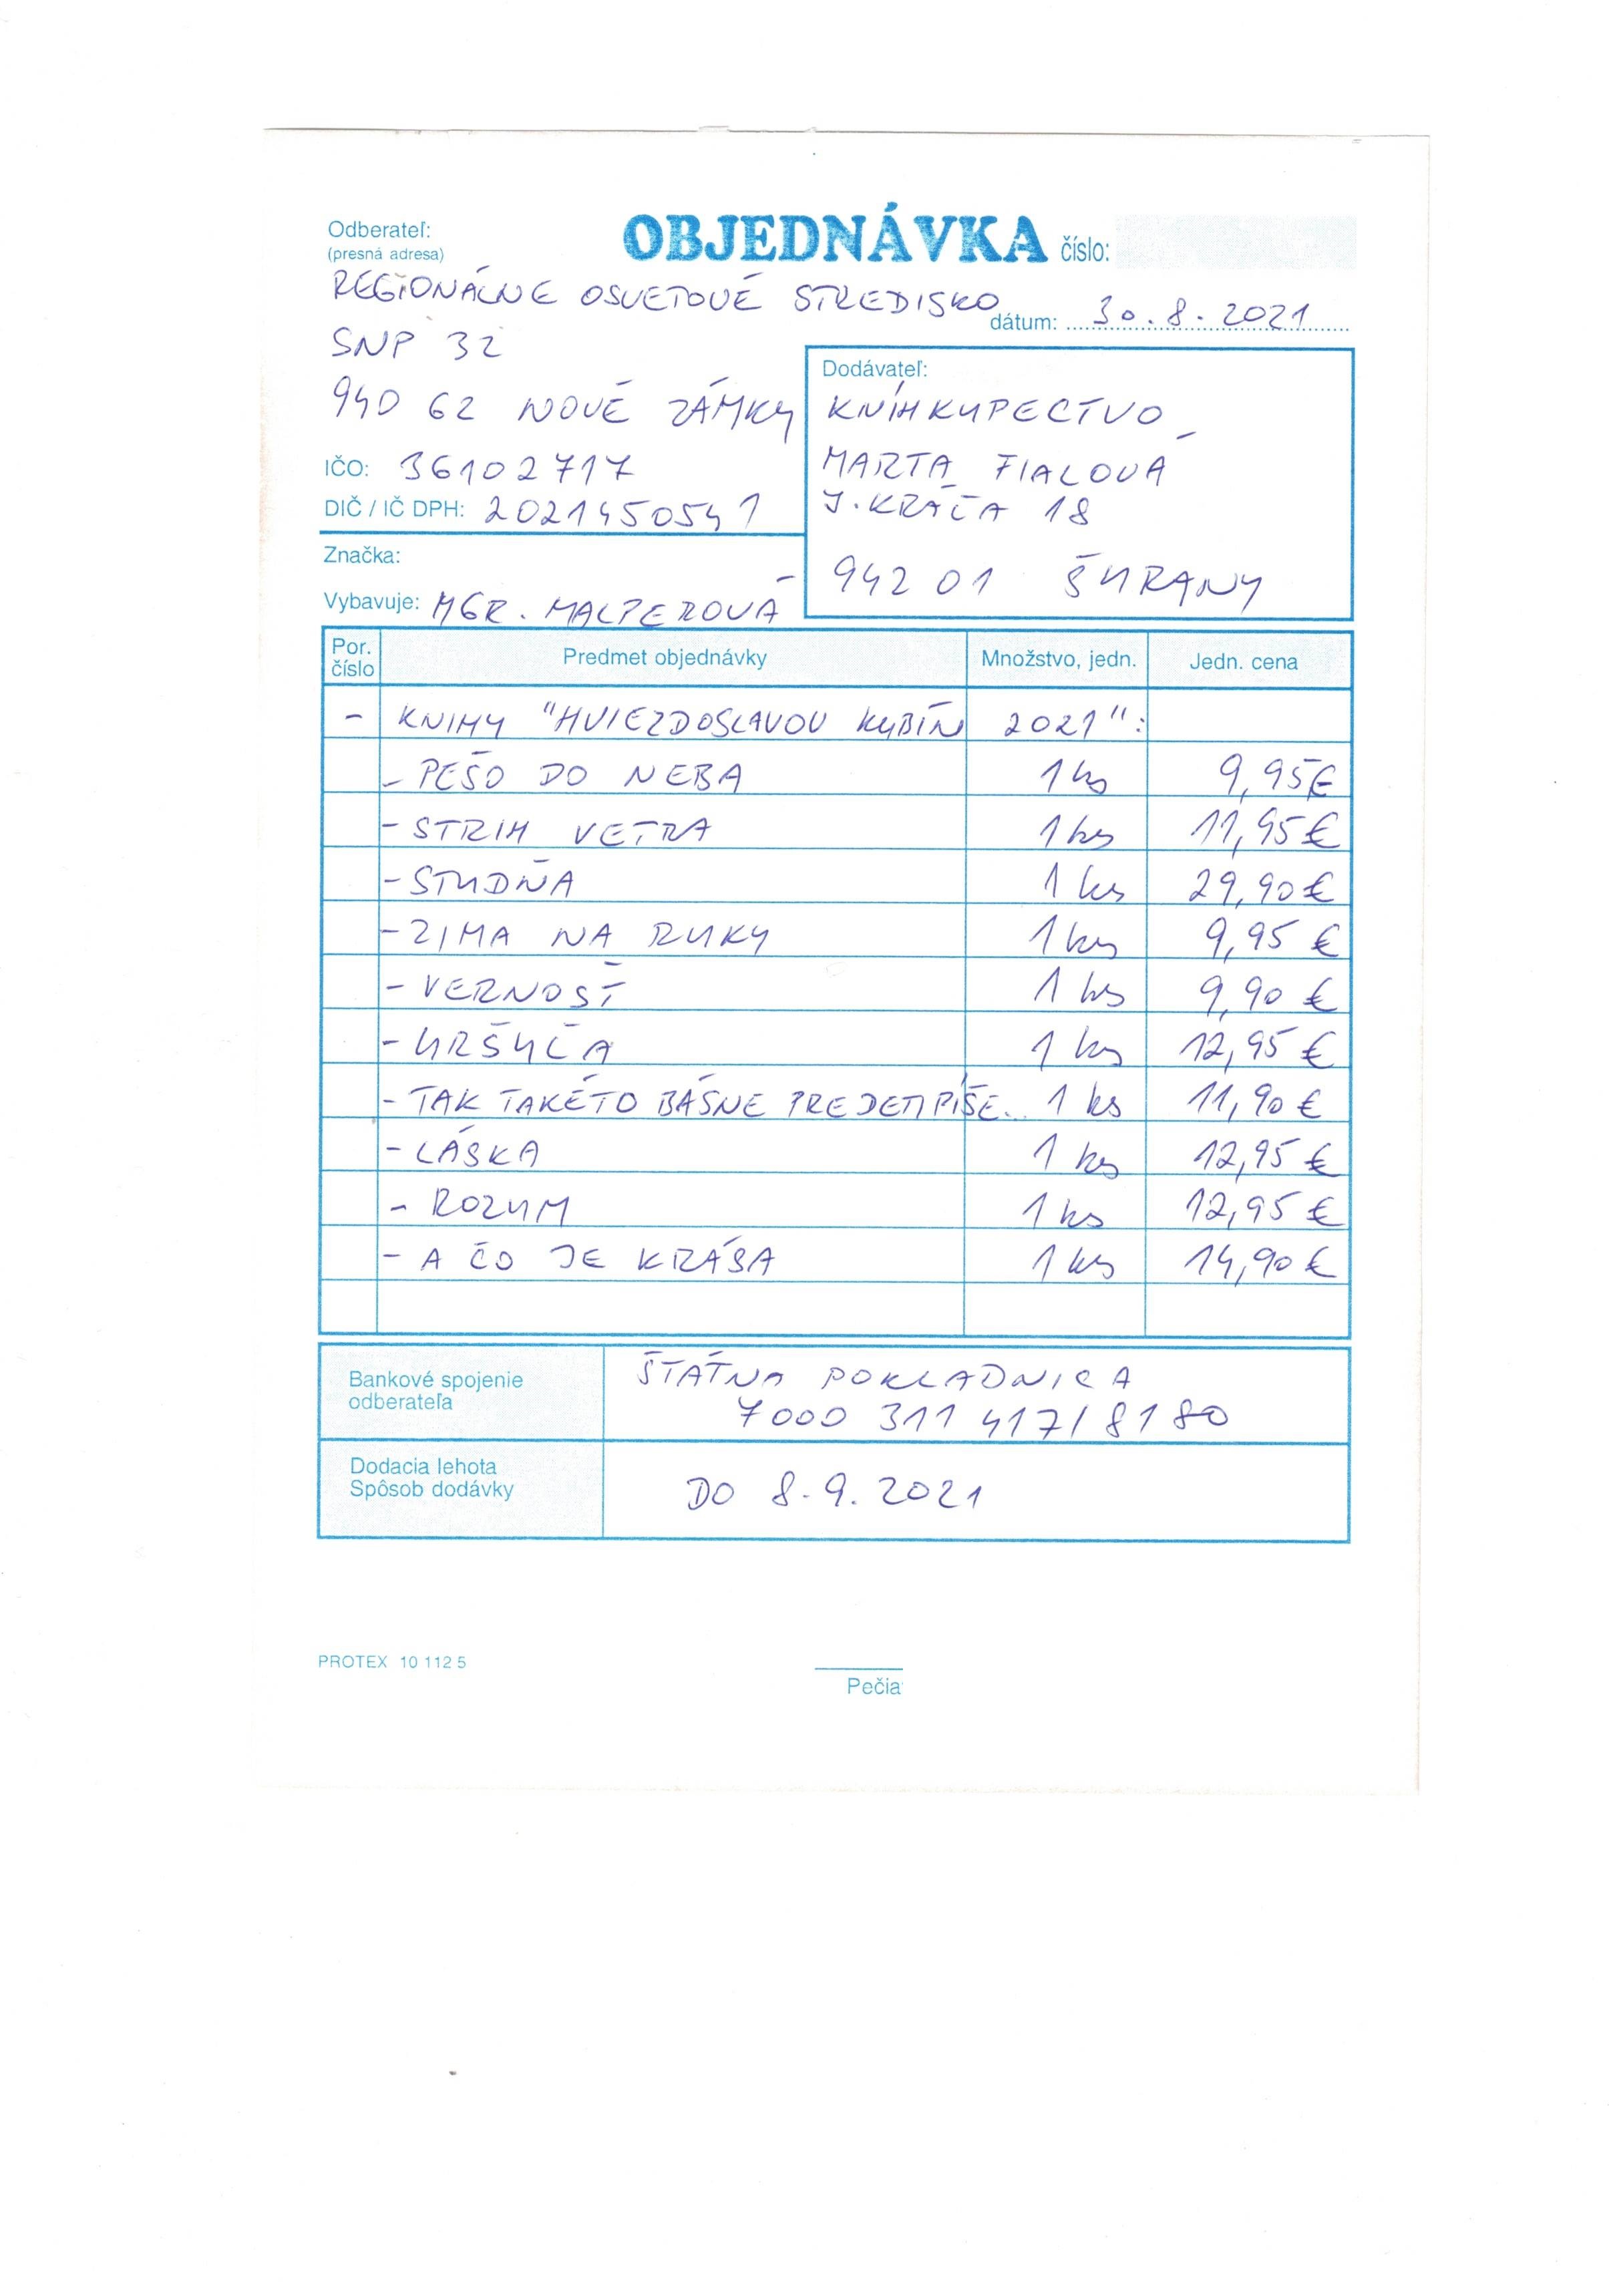 Odberateľ:
(presná adresa)
OBJEDNÁVKA číslo:
REGIONÁLNE OSVETOVÉ STREDISKO
dátum: 30.8.2021
SNP 32
940 62 NOVÉ ZÁMKY
IČO: 36102717
DIČ / IČ DPH: 2021450541
Značka:
Vybavuje: MGR. MALPEROVÁ
Dodávateľ:
KNÍHKUPECTVO
MARTA FIALOVÁ
J. KRÁĽA 18
942 01 ŠURANY
Por. číslo Predmet objednávky Množstvo, jedn. Jedn. cena
- KNIHY "HVIEZDOSLAVOV KUBÍN 2021":
- PEŠO DO NEBA 1 ks 9,95€
- STRIH VETRA 1 ks 11,95€
- STUDŇA 1 ks 29,90€
- ZIMA NA RUKY 1 ks 9,95 €
- VERNOSŤ 1 ks 9,90 €
- URŠUĽA 1 ks 12,95 €
- TAK TAKÉTO BÁSNE PREDEMPÍŠE.. 1 ks 11,90 €
- LÁSKA 1 ks 12,95 €
- ROZUM 1 ks 12,95 €
- A ČO JE KRÁSA 1 ks 14,90 €
Bankové spojenie
odberateľa
ŠTÁTNA POKLADNICA
7000 311 417/8180
Dodacia lehota
Spôsob dodávky
DO 8.9.2021
PROTEX 10 112 5
Pečia